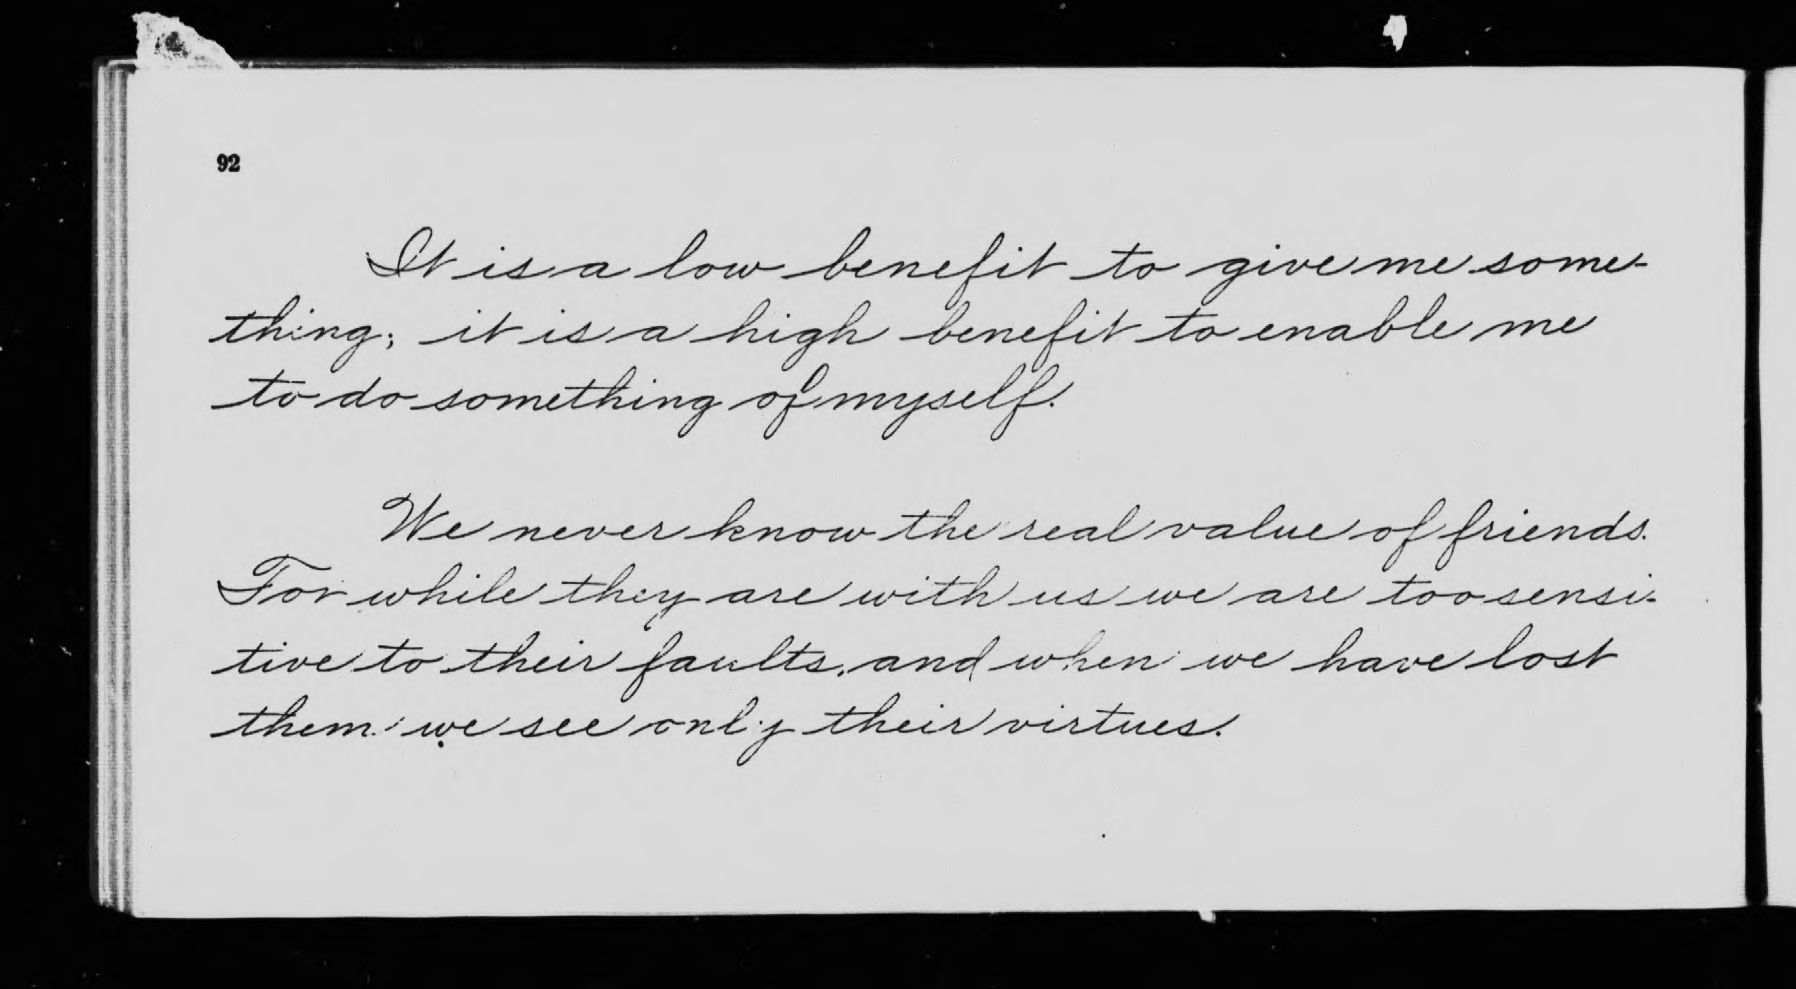 92
It is a low benefit to give me some-
thing; it is a high benefit to enable me
to do something of myself.
We never know the real value of friends.
For while they are with us we are too sensi-
tive to their faults, and when we have lost
them we see only their virtues.